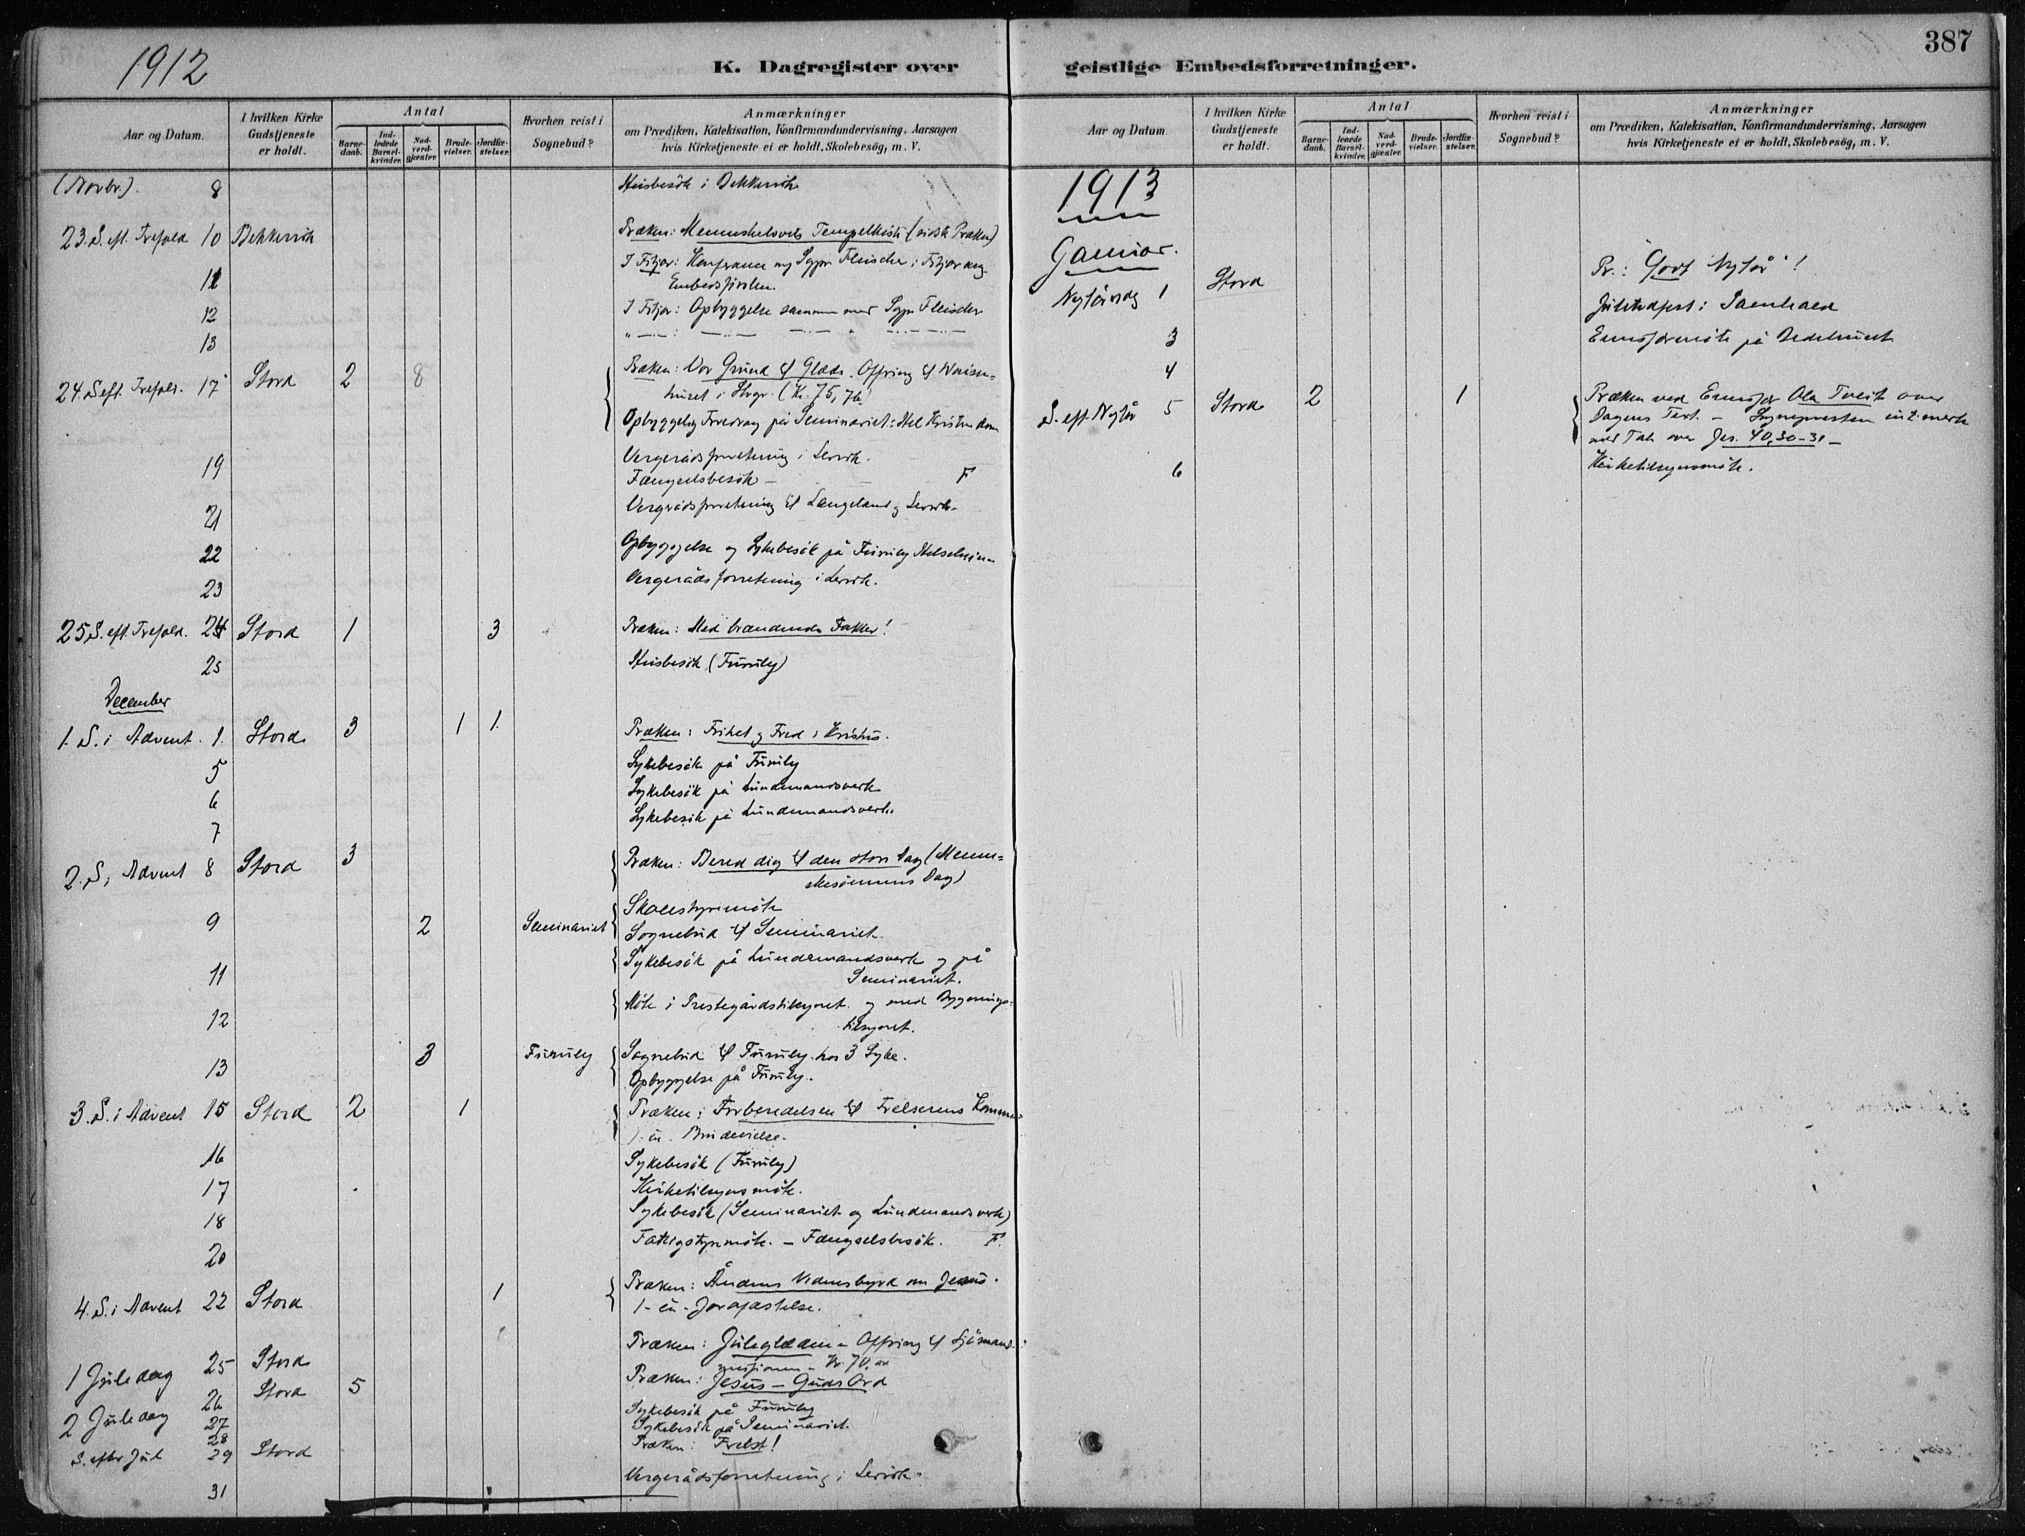 1912
K. Dagregister over
Aar og Datum.
I hvilken Kirke Gudstjeneste er holdt.
Antal
Barnedaab.
Indledede Barselkvinder.
Nadverdgjæster.
Brudevielser.
Jordfæstelser.
Hvorhen reist i Sognebud?
Anmærkninger
om Prædiken, Katekisation, Konfirmandundervisning, Aarsagen
hvis Kirketjeneste ei er holdt, Skolebesøg, m. V.
(Novbr). 8 Husbesök i
23. S. eft. Trefold 10 Præken: Tempelkiste (sidste Præken)
11 I Fitjar: Konferanse m/ Sgpr Fleischer i Fitjar ang.
12 I Fitjar: Opbyggelse sammen med Sgpr Fleischer
13
24. S eft. Trefold. 17 Stord 2 8 Præken: Vor Grund til Glæde. Offring til Waisen-
huset i Stvgr. (Kr. 75,76)
Opbyggelig Foredrag på Seminariet: Hel Kristendom
19 Vergerådsforretning i Lervik.
Fængselsbesök - F
21 Vergerådsforretning til Langeland og Lervik.
22 Opbyggelse og Sykebesök på Furuly
23 Vergerådsforretning i Lervik.
25 S. eft. Trefold. 24 Stord 1 3 Præken: Med brændende Fakler!
25 Husbesök (Furuly)
December
1. S. i Advent. 1. Stord 3 1 1. Præken: Frihet og Fred i Kristus.
5 Sykebesök på Furuly
6 Sykebesök på Lundemandsverk
7 Sykebesök på Lundemandsverk
2. S. i Advent 8 Stord 3 Præken: Bered dig til den store Dag (Menne-
skesönnens Dag)
9 2 Seminariet Skolestyremöte
Sognebud til Seminariet.
11 Sykebesök på Lundemandsverk og på
Seminariet.
12 Möte i Prestegårdstilsynet og med Bygnings-
tilsynet.
13 3 Furuly Sognebud til Furuly hos 3 Syke.
Opbyggelse på Furuly.
3. S. i Advent 15 Stord 2 1 Præken: Forberedelsen til Frelserens Komme
1 - en - Brudevielse.
16 Sykebesök (Furuly)
17 Kirketilsynsmöte.
18 Sykebesök (Seminariet og Lundemandsverk)
20 Fattigstyremöte. - Fængselsbesök. F.
4. S. i Advent 22 Stord 1 Præken: Åndens Vidnesbyrd om Jesus.
1 - en - Jordfæstelse.
1 Juledag 25 Stord Præken: Juleglæden - Offring til Sjömands-
missionen - Kr 70.
2 Juledag 26 Stord 5 Præken: Jesus - Guds Ord
27 Sykebesök på Furuly
28 Sykebesök på Seminariet.
S. efter Jul 29 Stord Præken: Frelst!
31 Vergerådsforretning i Lervik.
387
geistlige Embedsforretninger.
Aar og Datum
I hvilken Kirke Gudstjeneste er holdt.
Antal
Barnedaab.
Indledede Barselkvinder.
Nadverdgjæster.
Brudevielser.
Jordfæstelser.
Hvorhen reist i Sognebud?
Anmærkninger
om Prædiken, Katekisation, Konfirmandundervisning, Aarsagen
hvis Kirketjeneste ei er holdt, Skolebesøg, m. V.
1913
Januar.
Nytårsdag 1 Stord Pr.: Godt Nytår!
3 Juletræfest i
4 Emisærmöte på Bedehuset
S. eft. Nytår 5 Stord 2 1 Præken ved Emisær Ola Tveit over
Dagens Text. - Sogneprest
med Tale over Jes. 40,30-31 -
6 Kirketilsynsmöte.